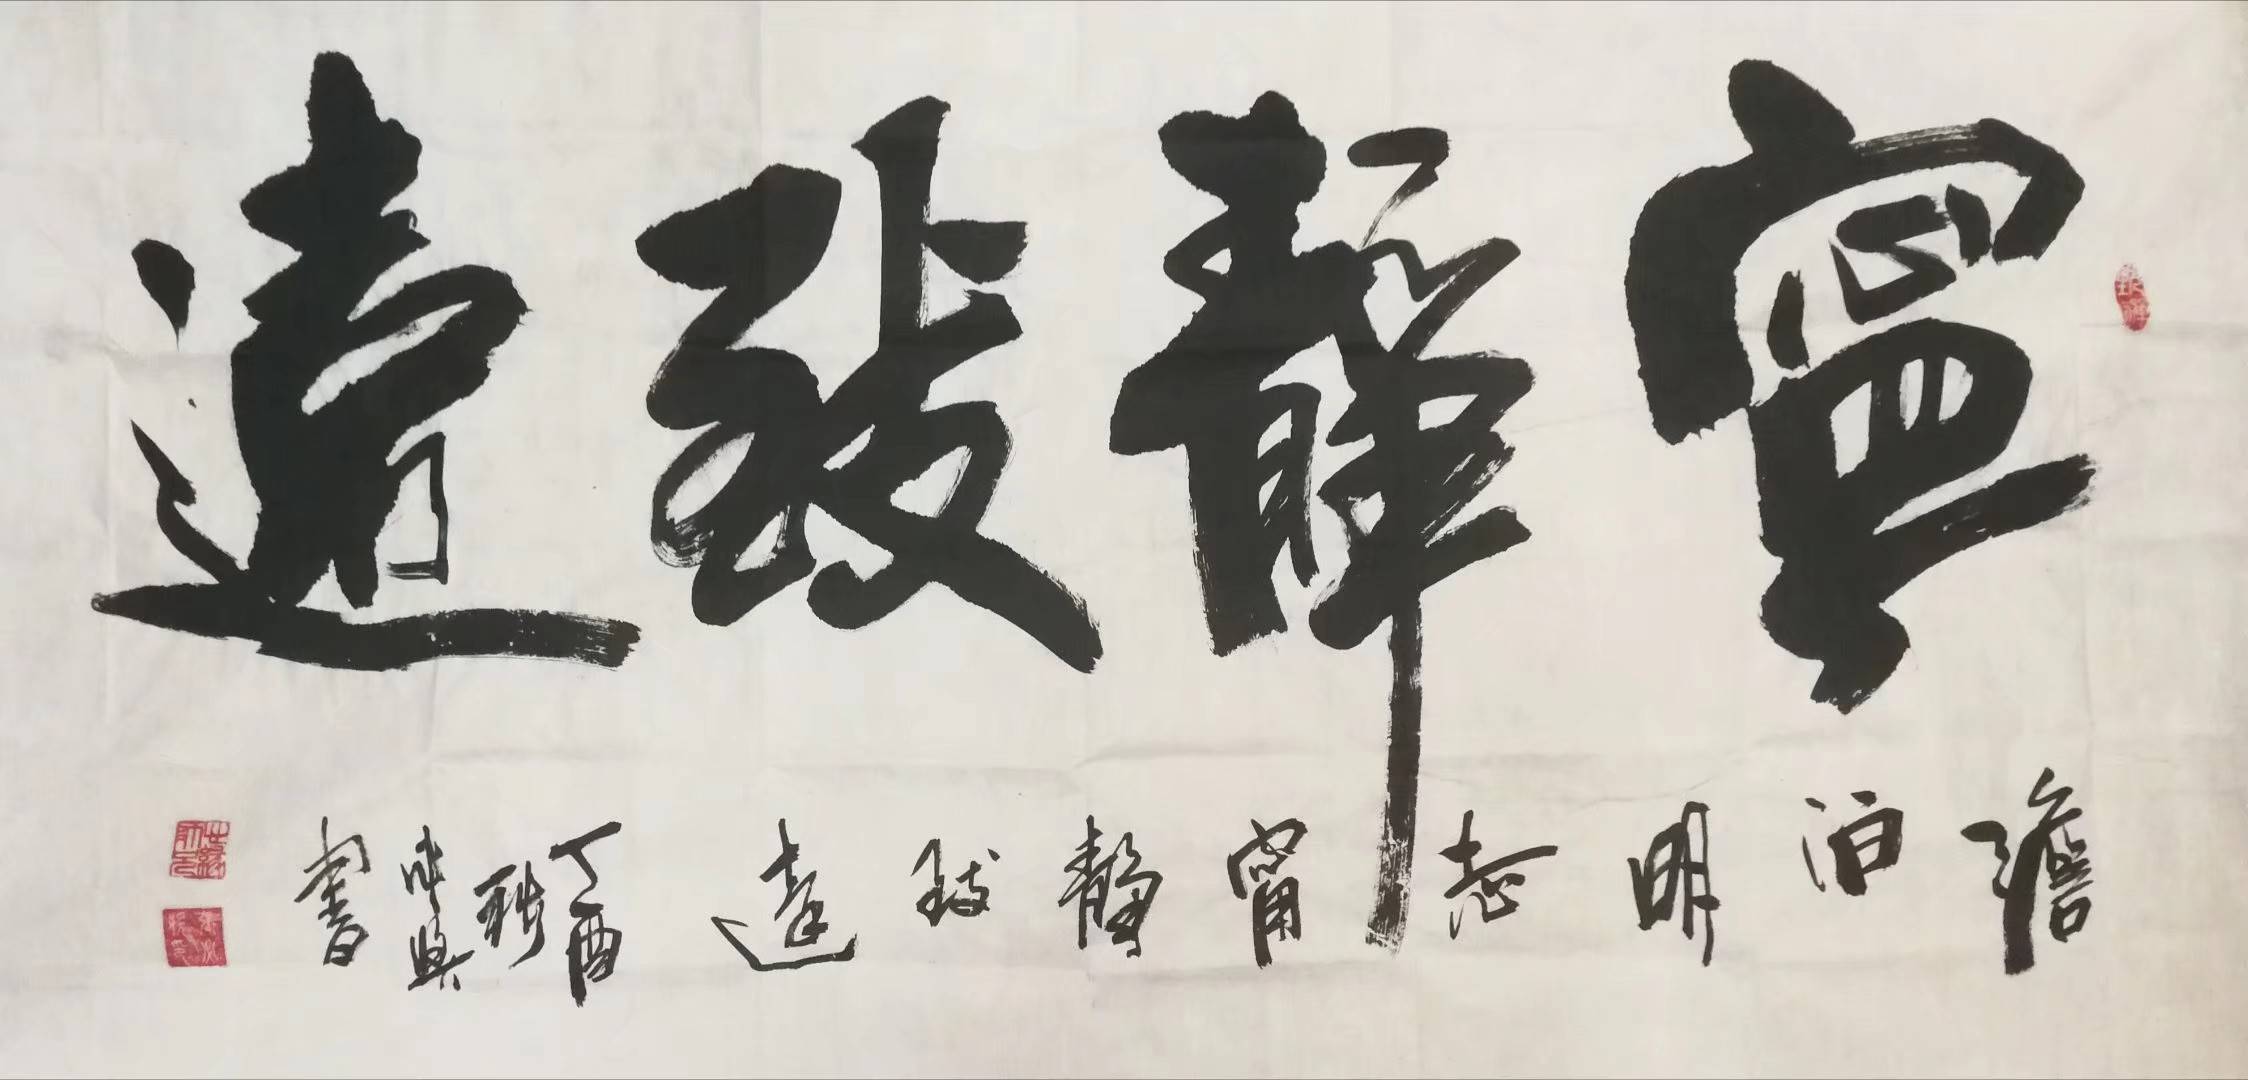 寧靜致遠
澹泊明志寧靜致遠
丁酉秋
書